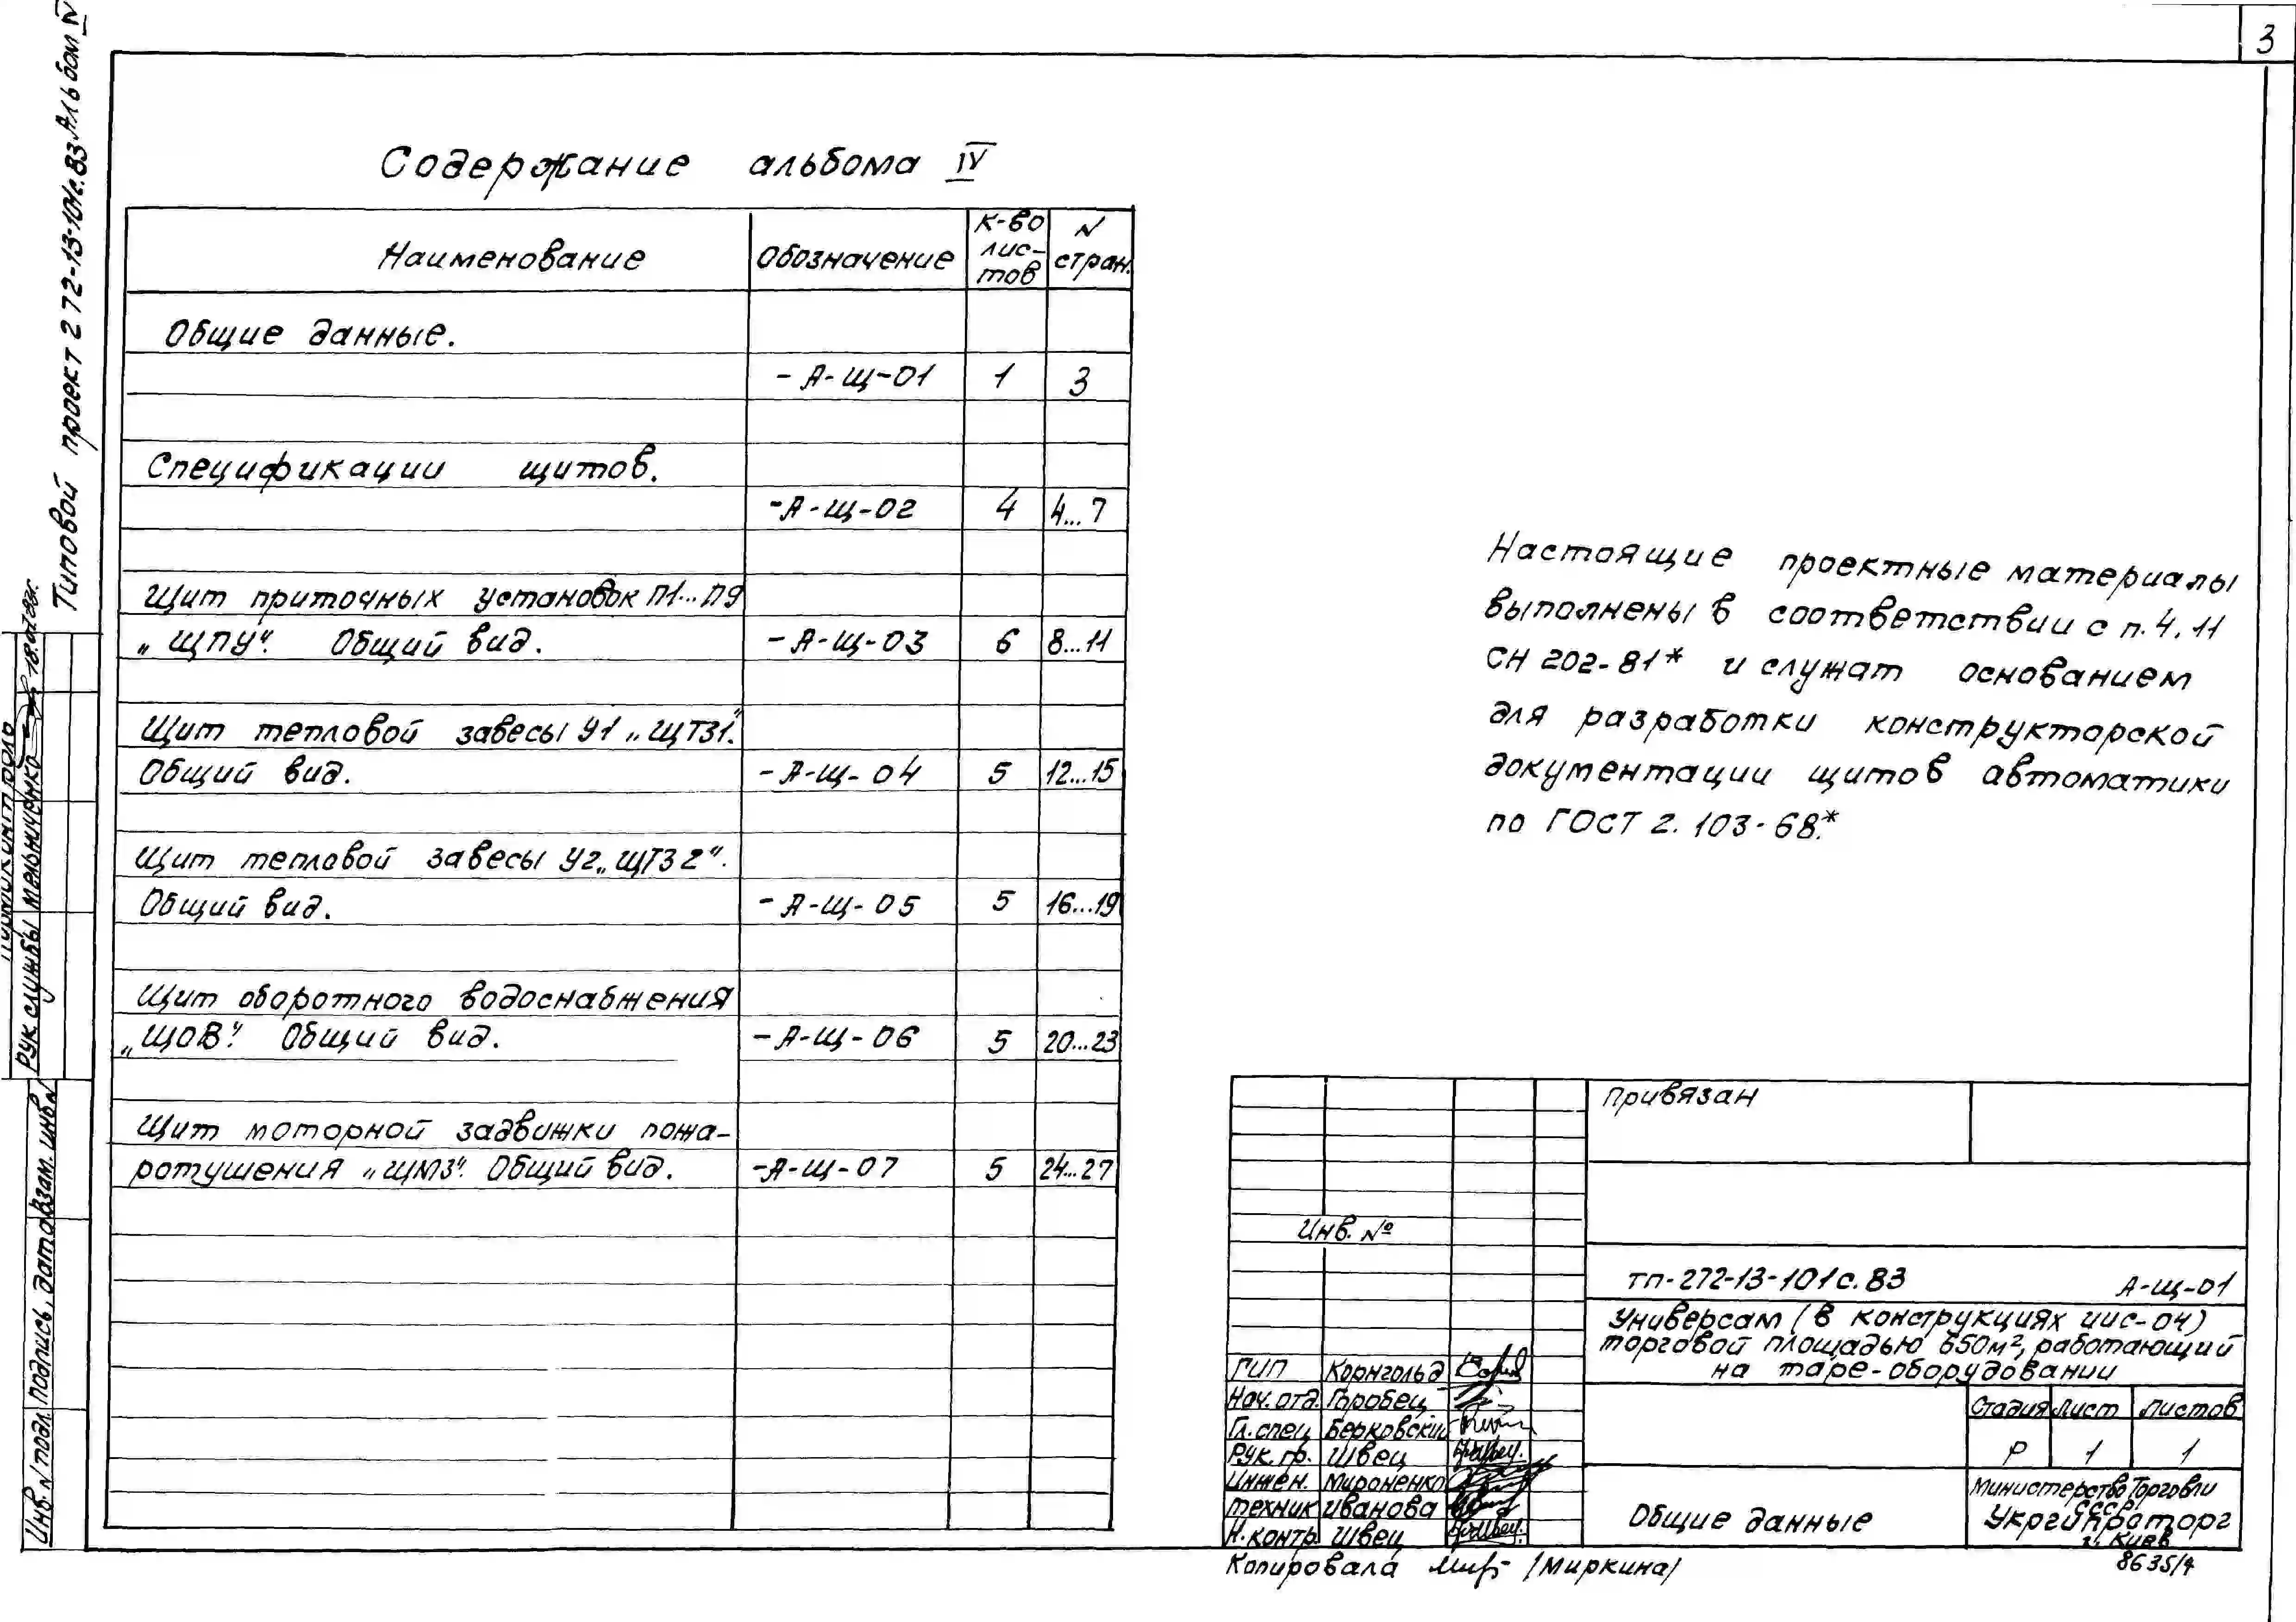 3
Типовой проект 272-13-101с.83 Альбом IV
Содержание альбома IV
Наименование
Обозначение
К-во
лис-
тов
N
стран.
Общие данные.
-А-Щ-01 1 3
Спецификации щитов.
-А-Щ-02 4 4...7
Щит приточных установок П1...П9
„ЩПУ". Общий вид. -А-Щ-03 6 8...11
Щит тепловой завесы У1 „ЩТЗ1".
Общий вид. -А-Щ-04 5 12...15
Щит тепловой завесы У2 „ЩТЗ2".
Общий вид. -А-Щ-05 5 16...19
Щит оборотного водоснабжения
„ЩОВ". Общий вид. -А-Щ-06 5 20...23
Щит моторной задвижки пожа-
ротушения „ЩМЗ". Общий вид. -А-Щ-07 5 24...27
Настоящие проектные материалы
выполнены в соответствии с п.4.11
СН 202-81* и служат основанием
для разработки конструкторской
документации щитов автоматики
по ГОСТ 2.103-68.*
Привязан
Инв. №
ТП-272-13-101с.83 А-Щ-01
Универсам (в конструкциях ИИС-04)
торговой площадью 650м², работающий
на таре-оборудовании
ГИП Корнгольд
Нач. отд. Горобец
Гл. спец Берковский
Рук. гр. Швец
Инжен. Мироненко
Техник Иванова
Н. контр. Швец
Стадия Лист Листов
Р 1 1
Общие данные
Министерство Торговли
СССР
Укргипроторг
г. Киев
Копировала /Миркина/
8635/4
Рук службы Мельниченко 18.07.83г.
Инв. N подл. Подпись, дата Взам. инв N